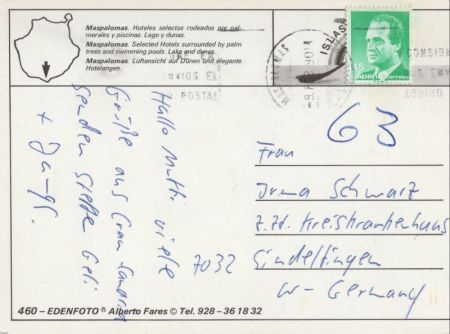 Maspalomas. Hoteles selectos rodeados por pal-
merales y piscinas. Lago y dunas.
Maspalomas. Selected Hotels surrounded by palm
trees and swimming pools. Lake and dunes.
Maspalomas. Luftansicht auf Dünen und elegante
Hotelangen.
ISLAS
15
España correos
ENVIOS EL
POSTAL
63
Hallo Mutti viele
Grüße aus Gran Canaria
senden Steffe Geli
+ Jungs.
Frau
Irma Schwarz
z.Zt. Kreiskrankenhaus
7032 Sindelfingen
W-Germany
460 - EDENFOTO ® Alberto Fares © Tel. 928 - 36 18 32